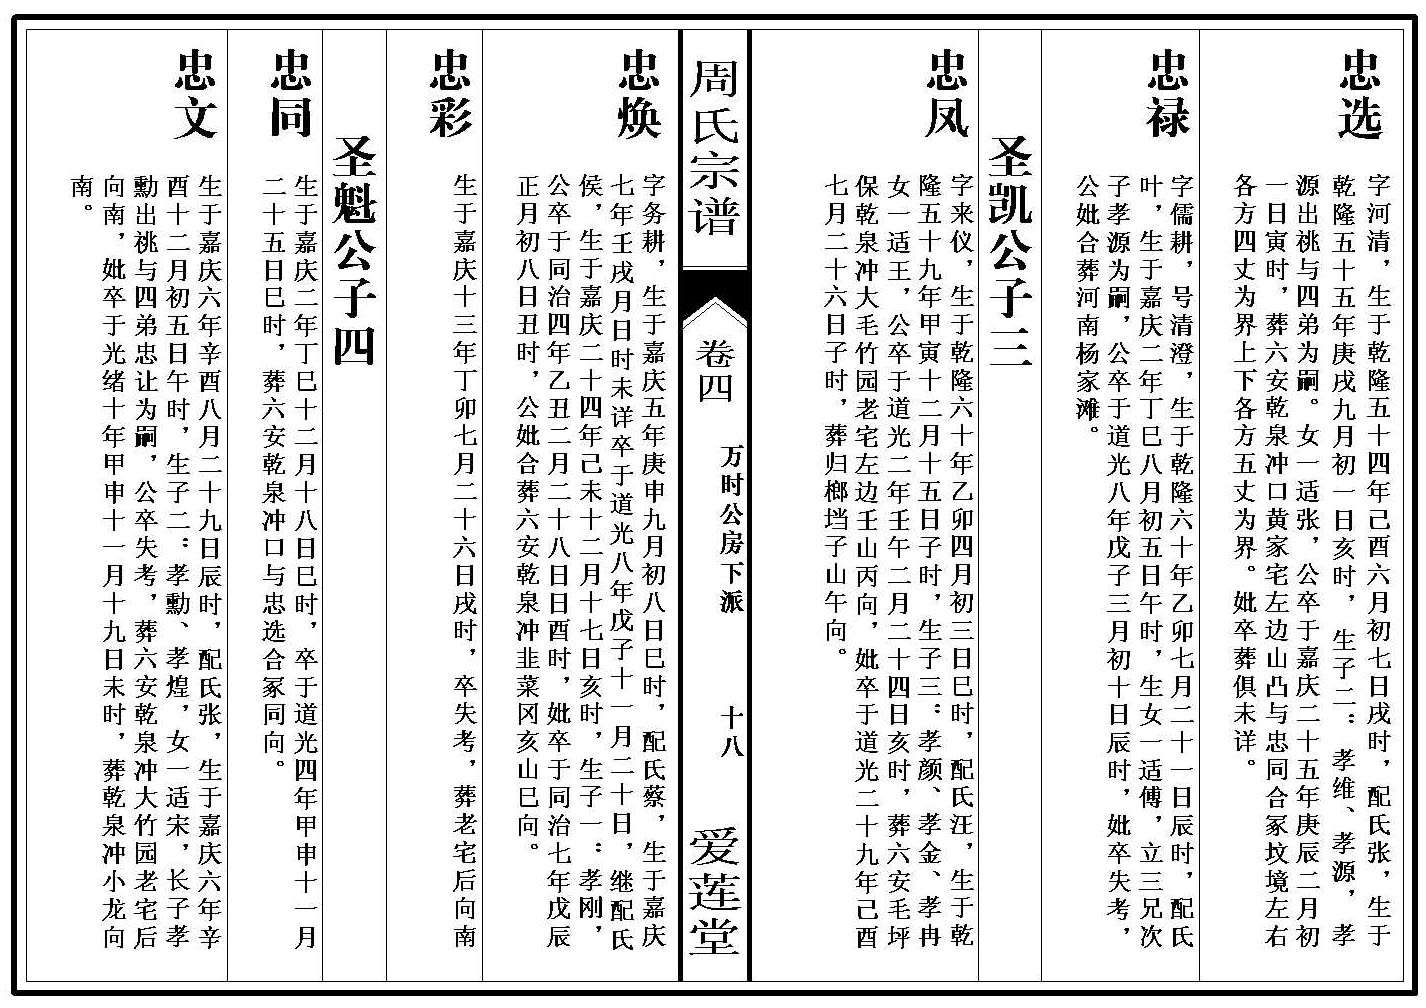 忠选
字河清，生于乾隆五十四年己酉六月初七日戌时，配氏张，生于
乾隆五十五年庚戌九月初一日亥时，生子二：孝维、孝源，孝
源出祧与四弟为嗣。女一适张，公卒于嘉庆二十五年庚辰二月初
一日寅时，葬六安乾泉冲口黄家宅左边山凸与忠同合冢坟境左右
各方四丈为界上下各方五丈为界。妣卒葬俱未详。
忠禄
字儒耕，号清澄，生于乾隆六十年乙卯七月二十一日辰时，配氏
叶，生于嘉庆二年丁巳八月初五日午时，生女一适傅，立三兄次
子孝源为嗣，公卒于道光八年戊子三月初十日辰时，妣卒失考，
公妣合葬河南杨家滩。
圣凯公子三
忠凤
字来仪，生于乾隆六十年乙卯四月初三日巳时，配氏汪，生于乾
隆五十九年甲寅十二月十五日子时，生子三：孝颜、孝金、孝冉
女一适王，公卒于道光二年壬午二月二十四日亥时，葬六安毛坪
保乾泉冲大毛竹园老宅左边壬山丙向，妣卒于道光二十九年己酉
七月二十六日子时，葬归榔垱子山午向。
周氏宗谱
卷四
万时公房下派
十八
爱莲堂
忠焕
字务耕，生于嘉庆五年庚申九月初八日巳时，配氏蔡，生于嘉庆
七年壬戌月日时未详卒于道光八年戊子十一月二十日，继配氏
侯，生于嘉庆二十四年己未十二月十七日亥时，生子一：孝刚，
公卒于同治四年乙丑二月二十八日日酉时，妣卒于同治七年戊辰
正月初八日丑时，公妣合葬六安乾泉冲韭菜冈亥山巳向。
忠彩
生于嘉庆十三年丁卯七月二十六日戌时，卒失考，葬老宅后向南
圣魁公子四
忠同
生于嘉庆二年丁巳十二月十八日巳时，卒于道光四年甲申十一月
二十五日巳时，葬六安乾泉冲口与忠选合冢同向。
忠文
生于嘉庆六年辛酉八月二十九日辰时，配氏张，生于嘉庆六年辛
酉十二月初五日午时，生子二：孝勳、孝煌，女一适宋，长子孝
勳出祧与四弟忠让为嗣，公卒失考，葬六安乾泉冲大竹园老宅后
向南，妣卒于光绪十年甲申十一月十九日未时，葬乾泉冲小龙向
南。